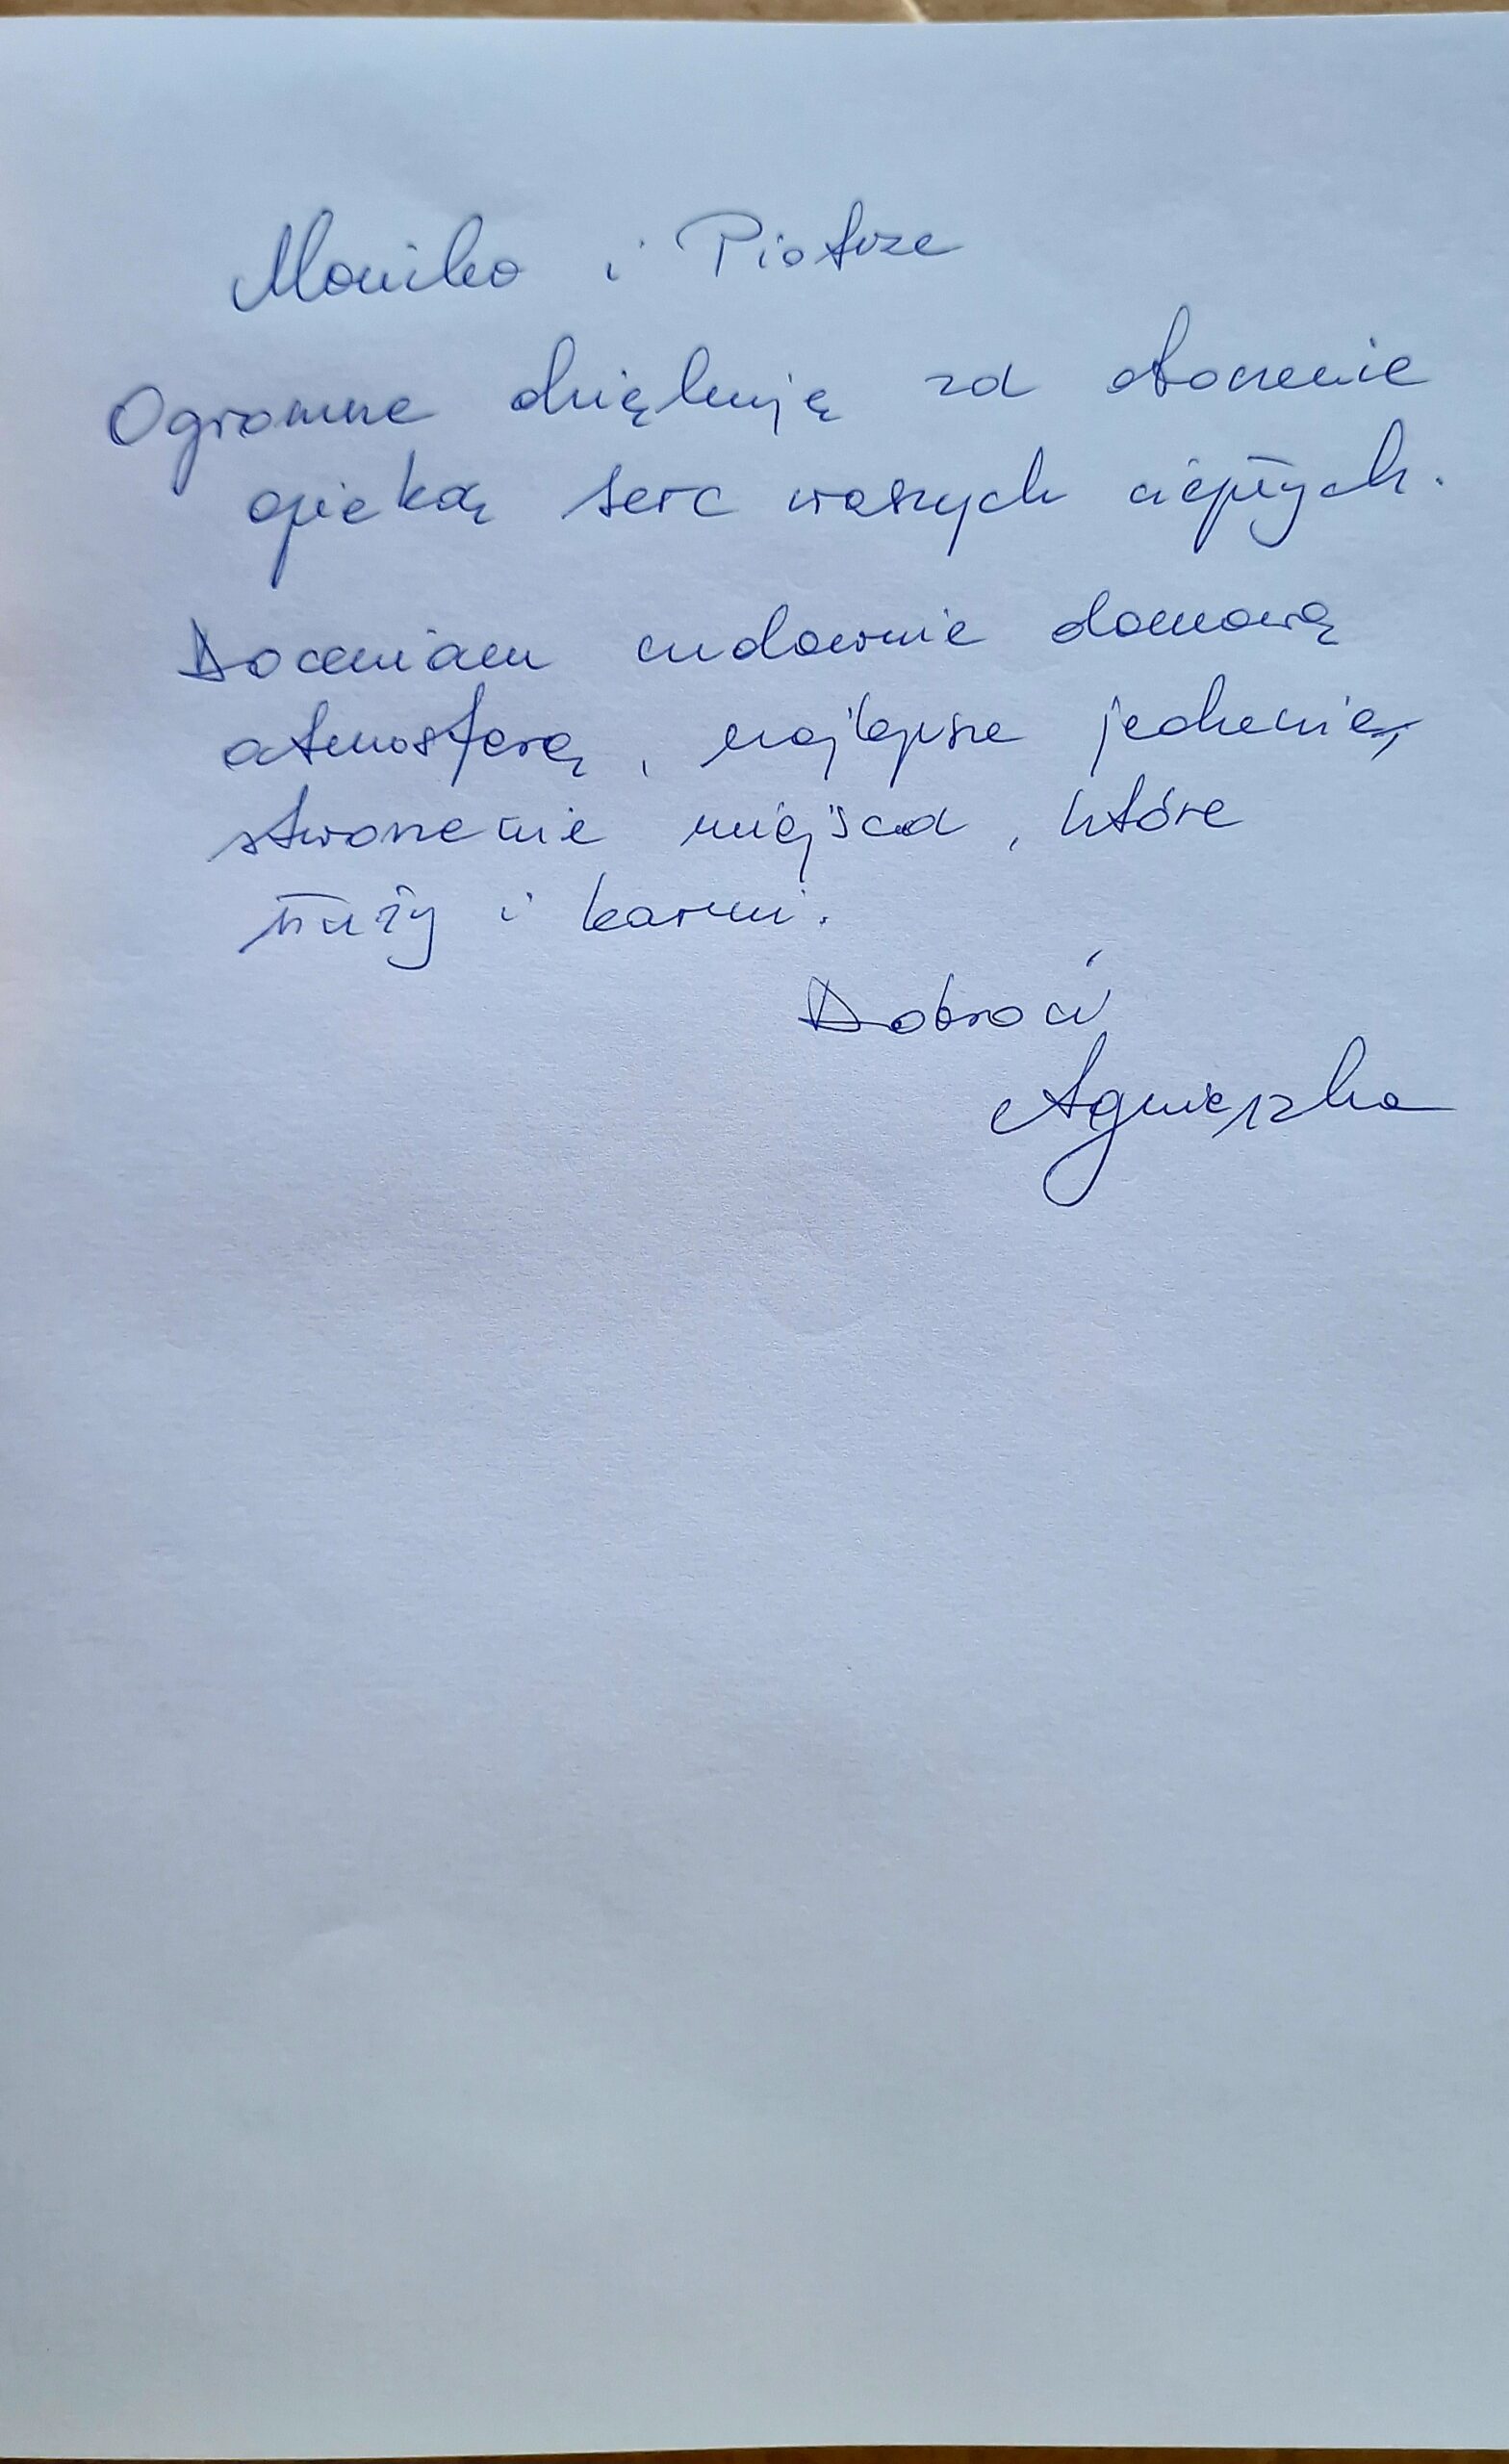 Moniko i Piotrze
Ogromne dziękuję za otoczenie
opieką serc waszych ciepłych.
Doceniam cudownie domową
atmosferę, najlepsze jedzenie,
stworzenie miejsca, które
służy i karmi.
Dobroci
Agnieszka